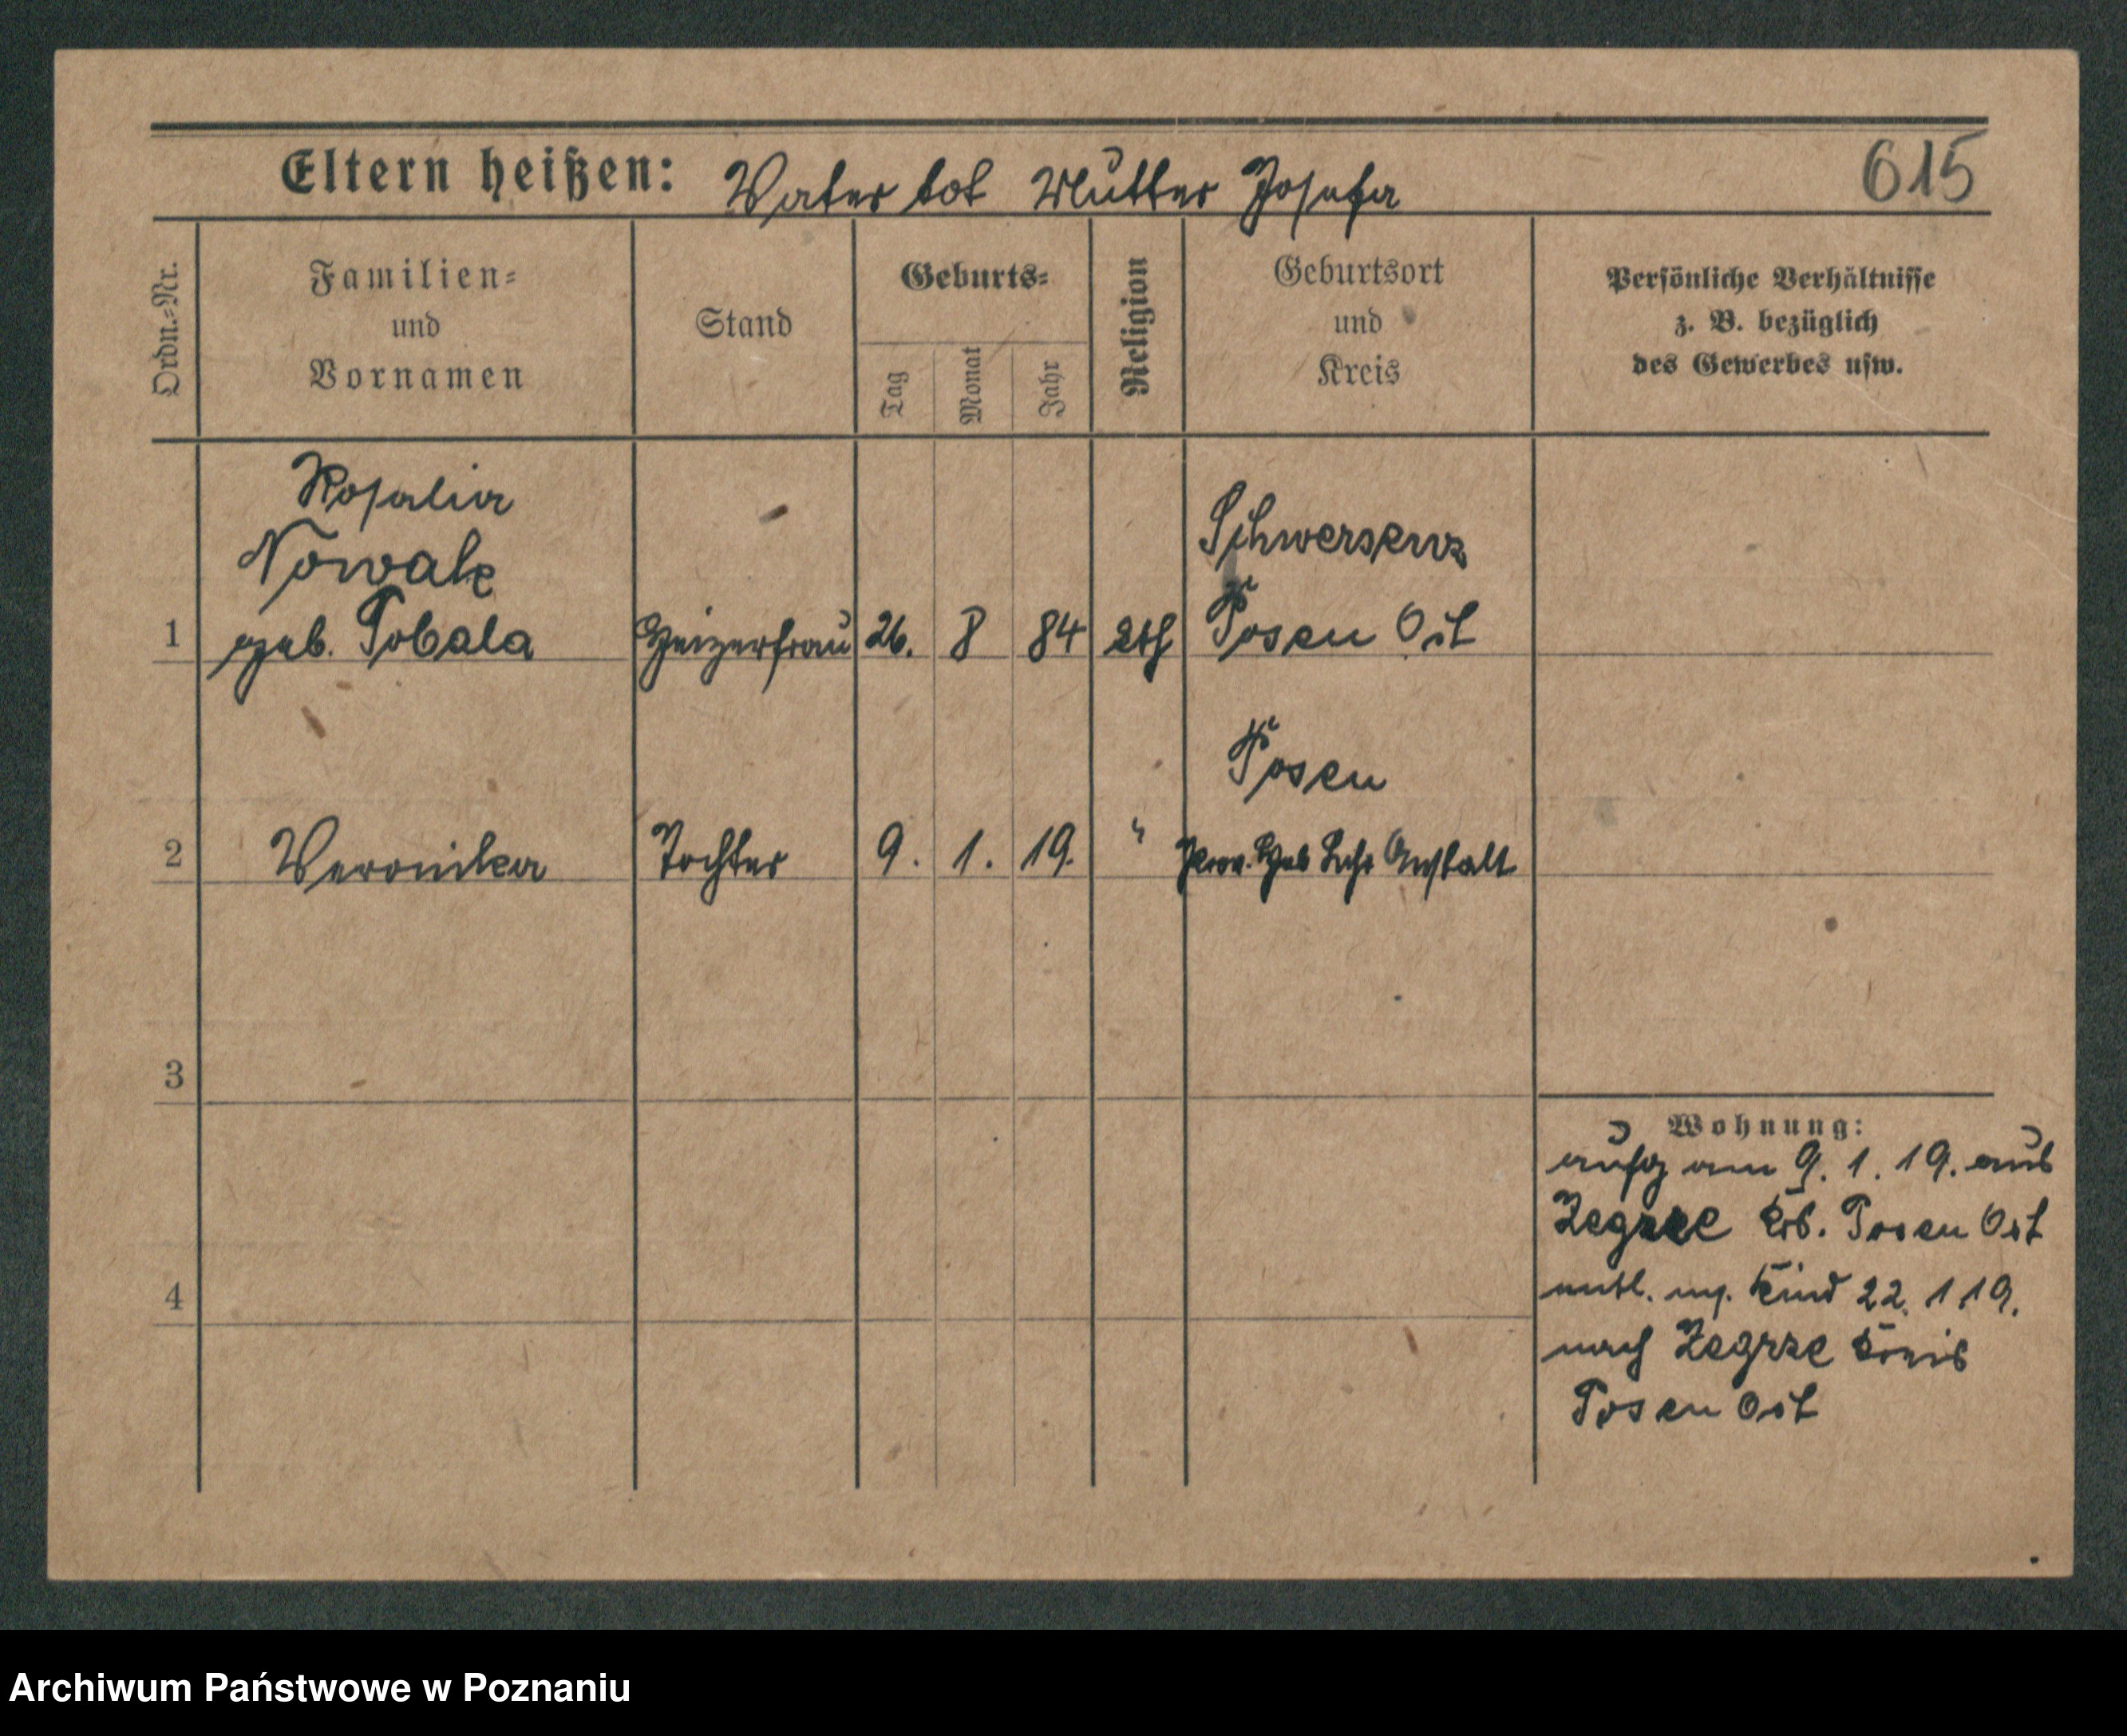 Eltern heißen: Vater tot Mutter Josefa 615
Ordn.=Nr.
Familien=
und
Vornamen
Stand
Geburts=
Tag
Monat
Jahr
Religion
Geburtsort
und
Kreis
Persönliche Verhältnisse
z. B. bezüglich
des Gewerbes usw.
Rosalia
Nowak
1 geb. Tobala Heizerfrau 26. 8 84 kth
Schwersenz
Posen Ost
Posen
2 Veronika Tochter 9. 1. 19. " Prov. Heb Lehr Anstalt
3
4
Wohnung:
aufg am 9. 1. 19. aus
Zegrze Krs. Posen Ost
entl. m. Kind 22. 1 19.
nach Zegrze Kreis
Posen Ost
Archiwum Państwowe w Poznaniu